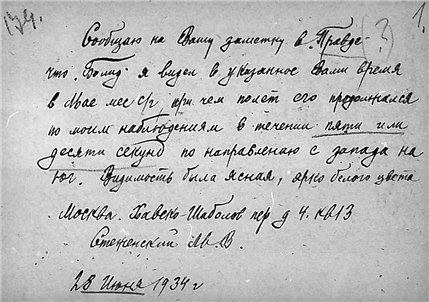 134.
1.
Сообщаю на Вашу заметку в "Правде" (?)
что "Болид" я видел в указанное Вами время
в Мае мес с/г, при чем полет его продолжался
по моим наблюдениям в течении пяти или
десяти секунд по направлению с запада на
юг. Видимость была ясная, ярко белого цвета
Москва. Хавско-Шаболов пер д 4. кв 13
М. В.
28 Июня 1934 г